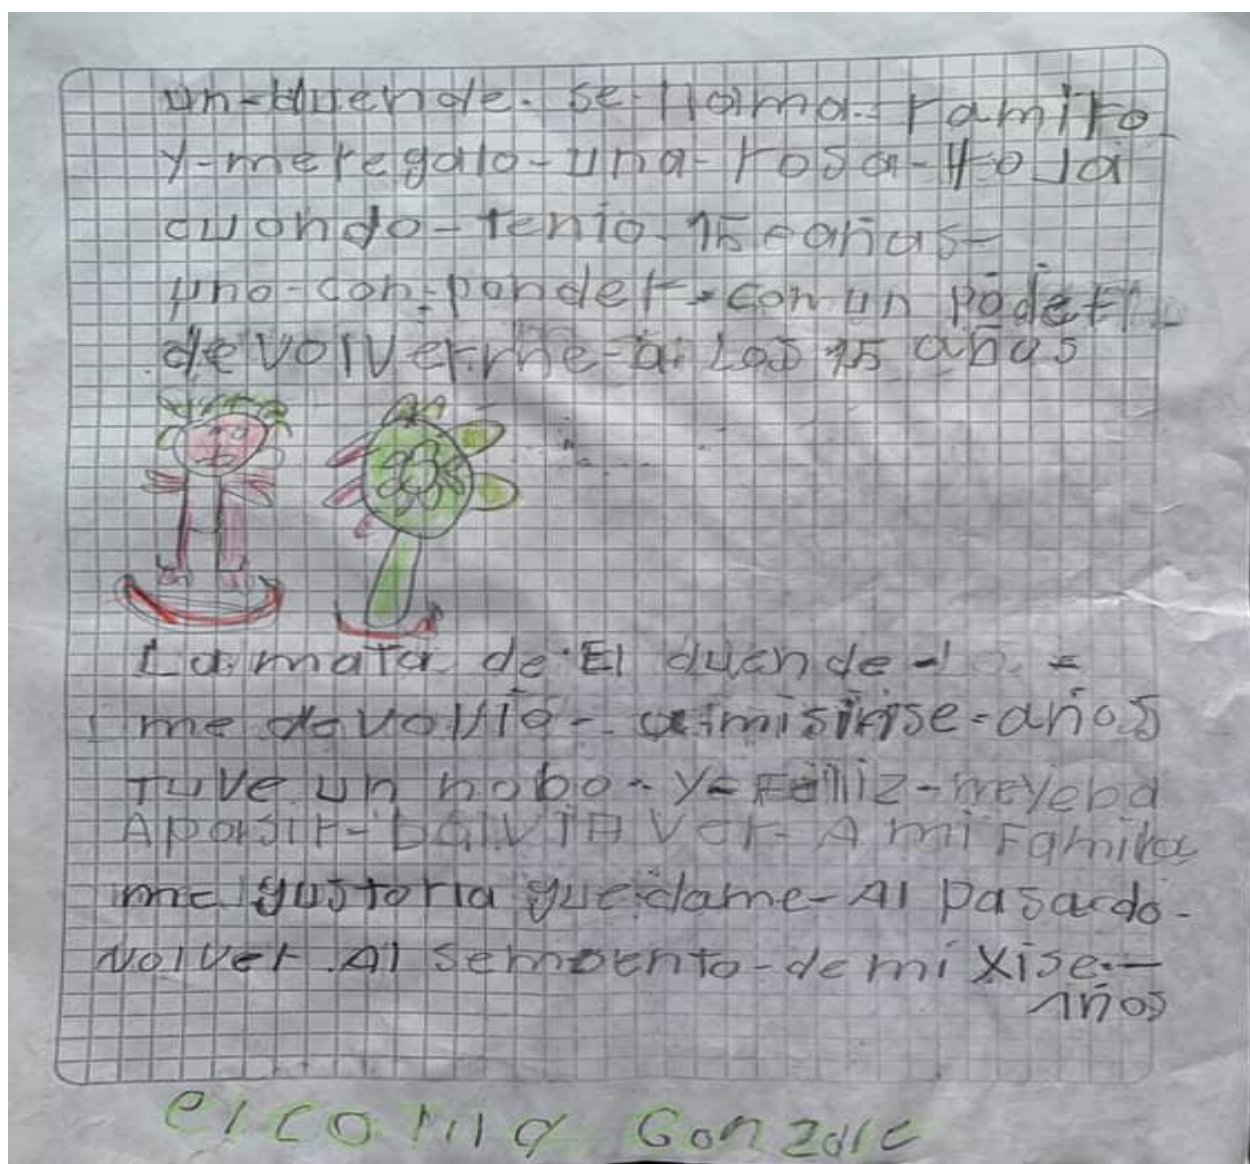 un-duende. se-llama-ramiro
y-meregalo-una-rosa-Hoja
cuando-tenia-15-años-
uno-con-ponder-con un poder
devolverme-a los 15 años
La mata de El duende-La =
me devolvio- a misinse-años
Tuve un nobo-y-Feiliz-meyeba
A pasir-bolvia ver-A mi Familia
me gustoria quedame-Al pasado-
volver Al semoento-de mi xise-
Años
Gonzale